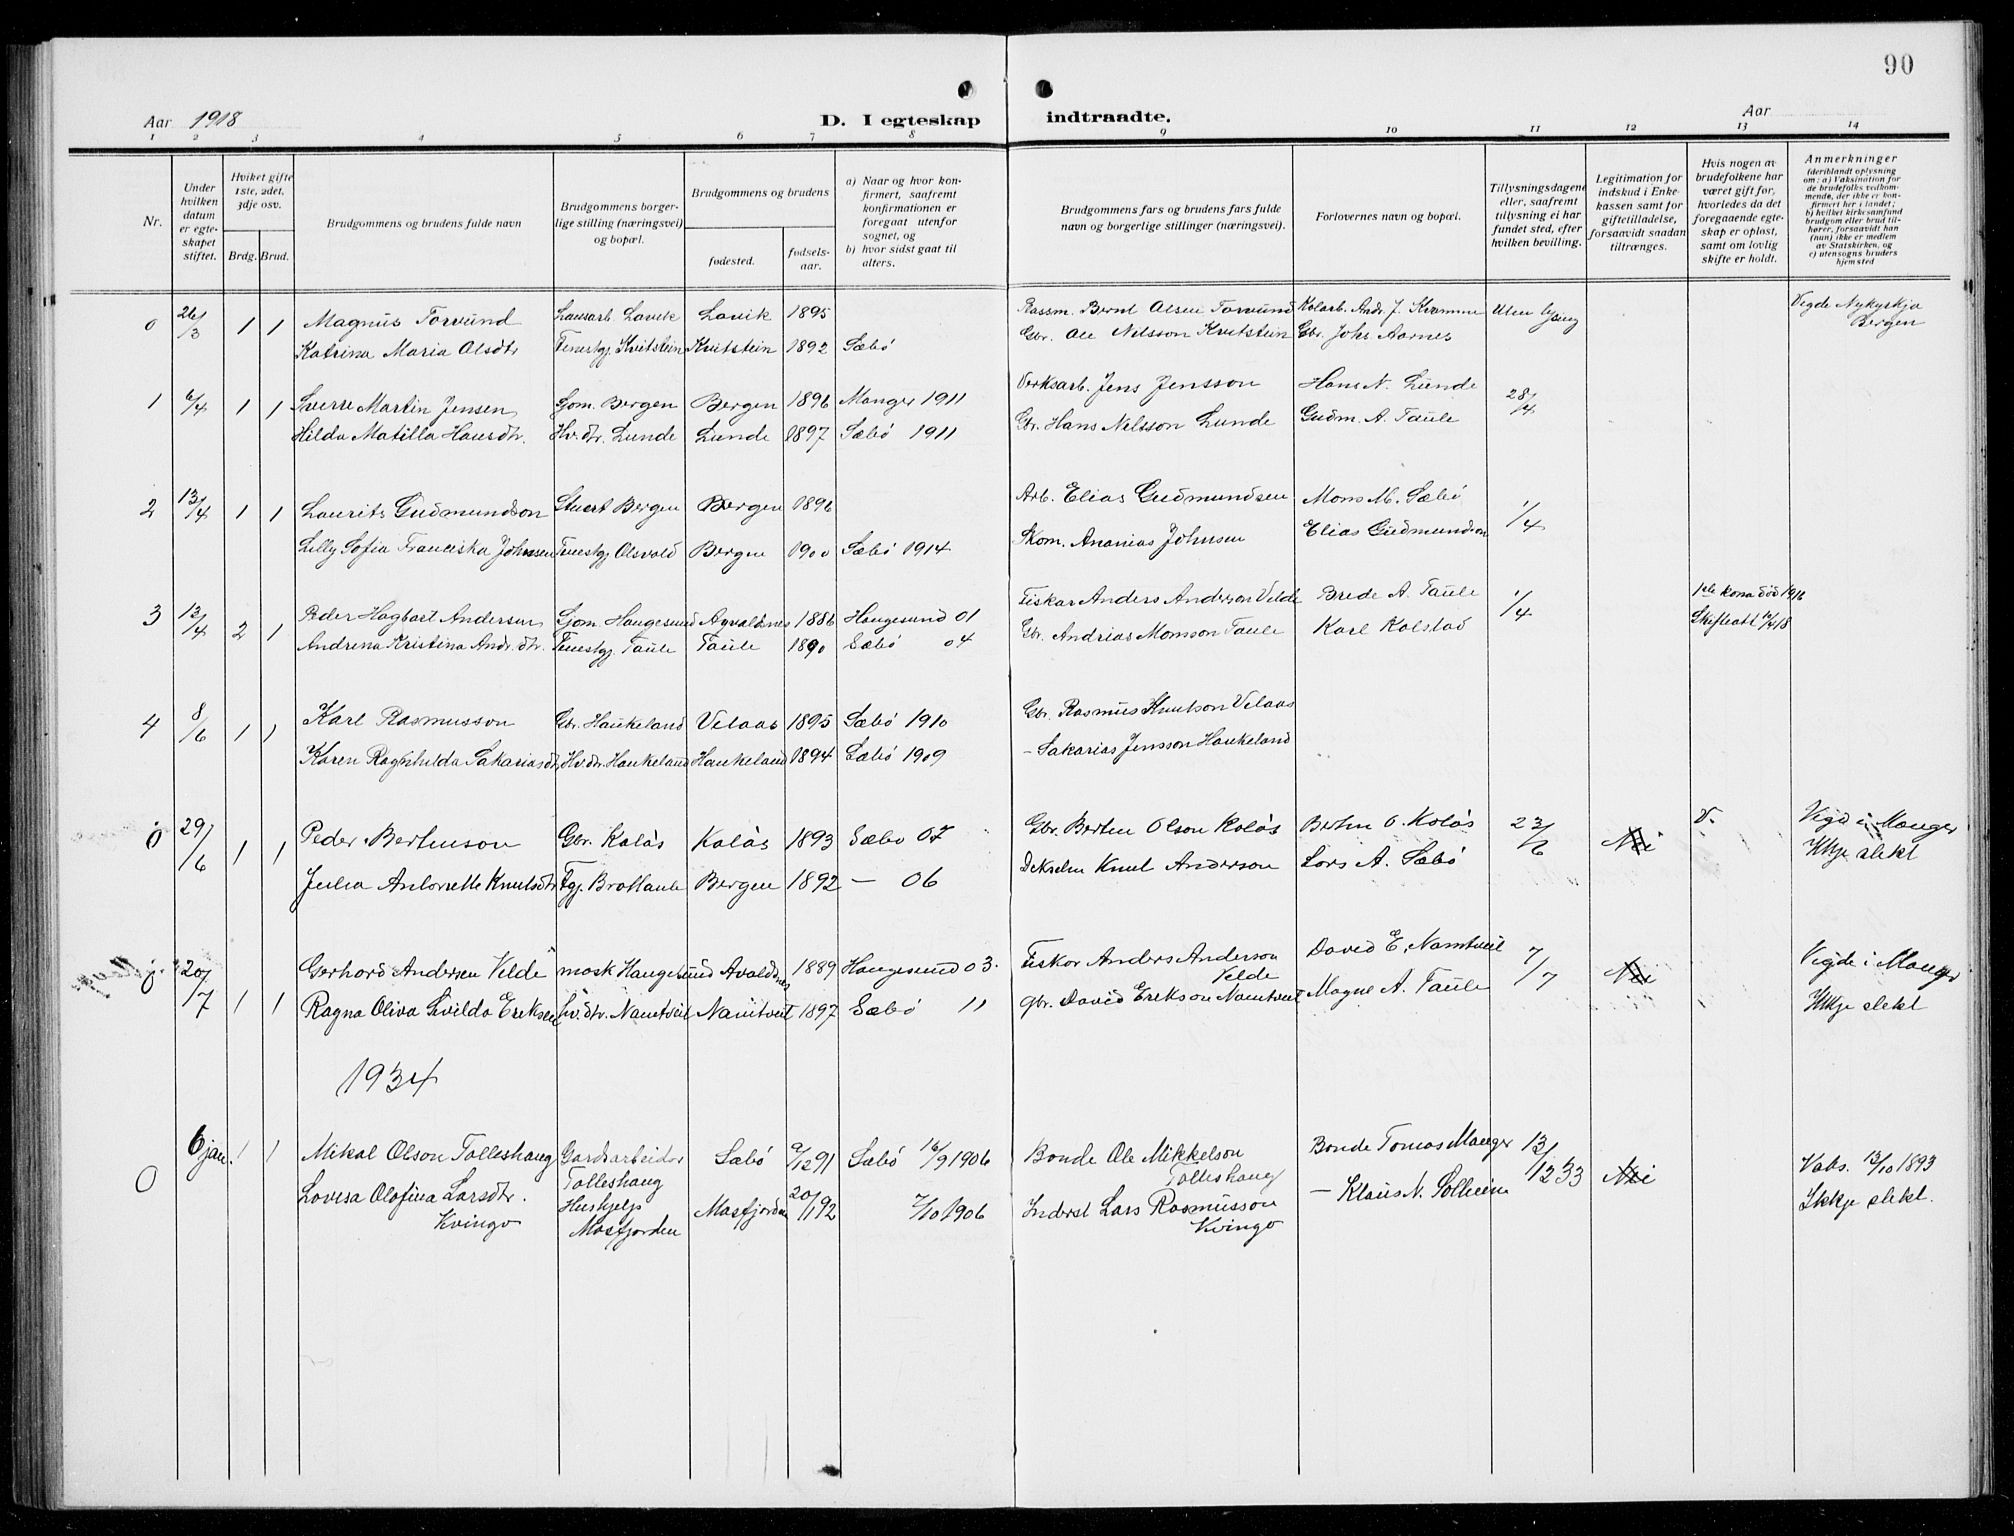 90
Aar 1918 D. I egteskap indtraadte. Aar
1 2 3 4 5 6 7 8 9 10 11 12 13 14
Nr.
Under hvilken datum er egteskapet stiftet.
Hviket gifte 1ste, 2det, 3dje osv.
Brdg. Brud.
Brudgommens og brudens fulde navn
Brudgommens borgerlige stilling (næringsvei) og bopæl.
Brudgommens og brudens
fødested. fødselsaar.
a) Naar og hvor konfirmert, saafremt konfirmationen er foregaat utenfor sognet, og
b) hvor sidst gaat til alters.
Brudgommens fars og brudens fars fulde navn og borgerlige stillinger (næringsvei).
Forlovernes navn og bopæl.
Tillysningsdagene eller, saafremt tillysning ei har fundet sted, efter hvilken bevilling.
Legitimation for indskud i Enkekassen samt for giftetilladelse, forsaavidt saadan tiltrænges.
Hvis nogen av brudefolkene har været gift før, hvorledes da det foregaaende egteskap er opløst, samt om lovlig skifte er holdt.
Anmerkninger (deriblandt oplysning om: a) Vaksination for de brudefolks vedkommende, der ikke er konfirmert her i landet; b) hvilket kirkesamfund brudgom eller brud tilhører, forsaavidt han (hun) ikke er medlem av Statskirken, og c) utensogns bruders hjemsted
0 26/3 1 1 Magnus Torvund Lausarb. Lavik Lavik 1895 Bernt Olsen Torvund Andr. J. Uten lysing Vigde Nykyrkja
Katrina Maria Olsdtr Tenestgj. Kvitstein Kvitstein 1892 Sæbö Gbr. Ole Nilsson Kvitstein Gbr. Johs. Aarnes Bergen
1 6/4 1 1 Sverre Martin Jensen Gom. Bergen Bergen 1896 Manger 1911 Verksarb. Jens Jensson Hans N. Lunde 28/4
Hilda Matilla Hansdtr. Hv.dtr. Lunde Lunde 1897 Sæbö 1911 Gbr. Hans Nilsson Lunde Gudm. A. Taule
2 13/4 1 1 Laurits Gudmundson Stuert Bergen Bergen 1896 Arb. Elias Gudmundsen Mons M. Sæbö 1/4
Lilly Sofia Franciska Johnsen Tenestgj. Olsvold Bergen 1900 Sæbö 1914 Skom. Ananias Johnsen Elias Gudmundson
3 13/4 2 1 Peder Hagbart Andersen Gom. Haugesund Avaldsnes 1886 Haugesund 01 Fiskar Anders Anderson Velde Brede A. Taule 1/4 1ste kona död 1916
Andrina Kristina Andr.dtr. Tenestgj. Taule Taule 1890 Sæbö 04 Gbr. Andrias Monsson Taule Karl Kolstad
4 8/6 1 1 Karl Rasmusson Gbr. Haukeland Velaas 1895 Sæbö 1910 Gbr. Rasmus Knutson Velaas
Karen Raghnilda Sakariasdtr. Hv.dtr. Haukeland Haukeland 1894 Sæbö 1909 - Sakarias Jensson Haukeland
0 29/6 1 1 Peder Bertenson Gbr. Kolås Kolås 1893 Sæbø 07 Gbr. Berten Olson Kolås Berten O. Kolås 23/6 Nei Vigd i Manger
Julia Antonette Knutsdtr Tgj. Brottaule Bergen 1892 — 06 Knut Anderson Lars A. Sæbö Ikkje slekt
0 20/7 1 1 Gerhard Andersen Velde mask Haugesund Avaldsnes 1889 Haugesund 03. Fiskar Anders Anderson Velde David E. Namtveit 7/7 Nei Vigde i Manger
Ragna Oliva Svilda Eriksen hv.dtr. Namtveit Namtveit 1897 Sæbö 11 gbr. David Erikson Namtveit Magne A. Taule Ikkje slekt
1934
0 6 jan. 1 1 Mikal Olson Tolleshaug Gardsarbeidar Tolleshaug Sæbö 9/12 91 Sæbö 16/9 1906 Bonde Ole Mikkelson Tolleshaug Bonde Tomas Manger 13/12 33 Nei Vaks. 13/10 1893
Lovisa Olafina Larsdtr. Kvingo Hushjelp Masfjorden Masfjorden 20/11 92 7/10 1906 Inderst Lars Rasmusson Kvingo — Klaus N. Solheim Ikkje slekt.